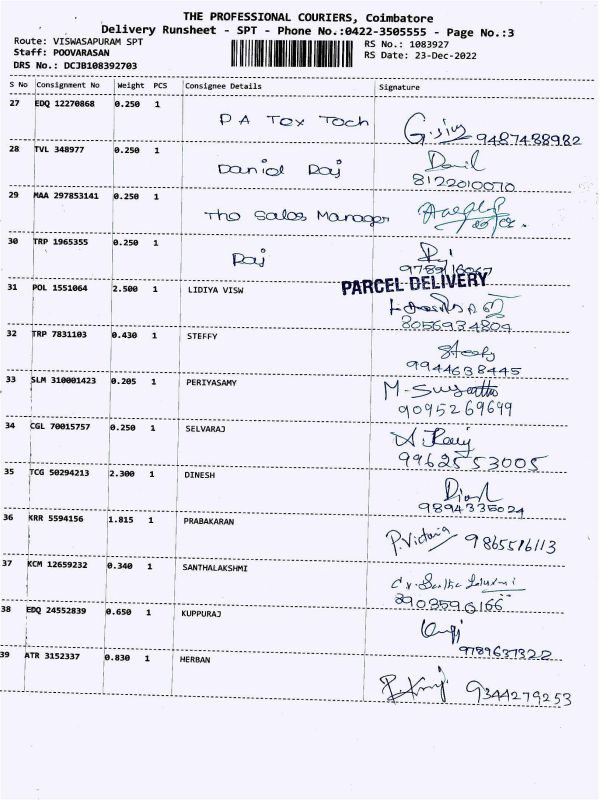 THE PROFESSIONAL COURIERS, Coimbatore
Delivery Runsheet - SPT - Phone No.:0422-3505555 - Page No.:3
Route: VISWASAPURAM SPT
RS No.: 1083927
Staff: POOVARASAN
RS Date: 23-Dec-2022
DRS No.: DCJB108392703
S No Consignment No Weight PCS Consignee Details Signature
27 EDQ 12270868 0.250 1
P A Tex Tech 9487488982
28 TVL 348977 0.250 1
Daniel Raj Danil
8122010070
29 MAA 297853141 0.250 1
The Sales Manager
30 TRP 1965355 0.250 1
Raj Rj
PARCEL DELIVERY
31 POL 1551064 2.500 1 LIDIYA VISW
8056934804
32 TRP 7831103 0.430 1 STEFFY
Steffy
9944638445
33 SLM 310001423 0.205 1 PERIYASAMY
9095269699
34 CGL 70015757 0.250 1 SELVARAJ
9962553005
35 TCG 50294213 2.300 1 DINESH
9894335024
36 KRR 5594156 1.815 1 PRABAKARAN
P.Victoria 9865516113
37 KCM 12659232 0.340 1 SANTHALAKSHMI
8903590166
38 EDQ 24552839 0.650 1 KUPPURAJ
9789637322
39 ATR 3152337 0.830 1 HERBAN
9344279253